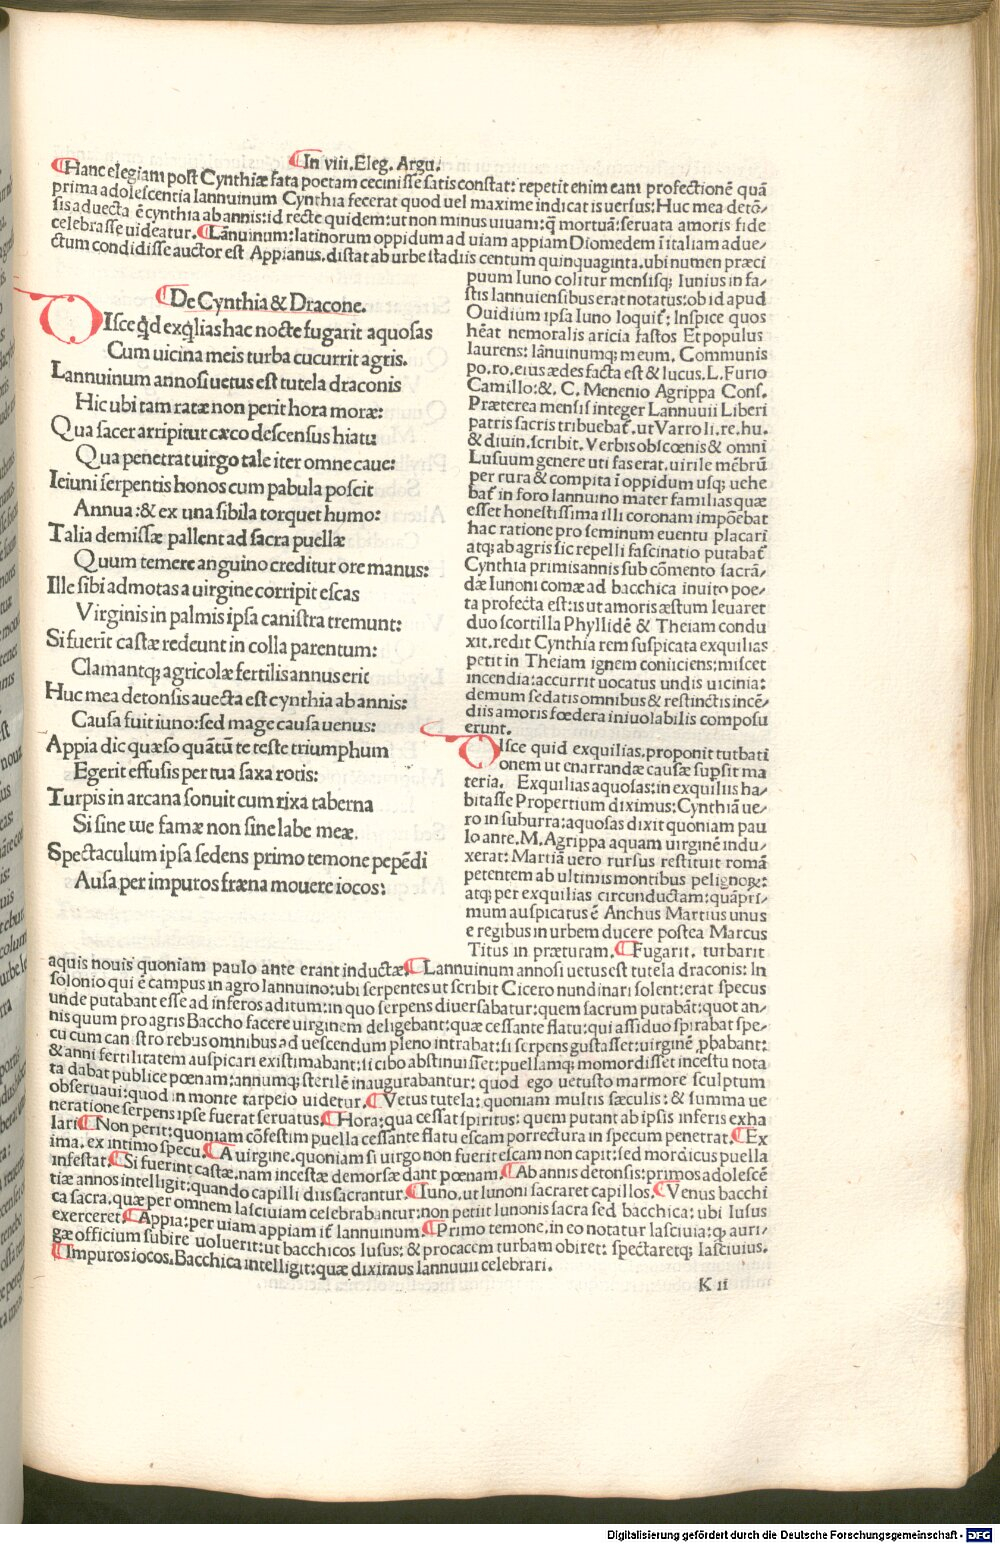 In viii. Eleg. Argu.
Hanc elegiam post Cynthiæ fata poetam cecinisse satis constat: repetit enim eam profectionē quā
prima adolescentia lannuinum Cynthia fecerat quod uel maxime indicat is uersus: Huc mea detō-
sis aduecta ē cynthia ab annis: id recte quidem: ut non minus uiuam: q̄ mortuā: seruata amoris fide
celebrasse uideatur. Lānuinum: latinorum oppidum ad uiam appiam Diomedem ī italiam adue-
ctum condidisse auctor est Appianus. distat ab urbe stadiis centum quinquaginta. ubi numen præci
puum Iuno colitur mensisq; Iunius in fa-
stis lannuiensibus erat notatus: ob id apud
Ouidium ipsa Iuno loquit̄: Inspice quos
hēat nemoralis aricia fastos Et populus
laurens: lānuinumq; meum. Communis
po. ro. eius ædes facta est & lucus. L. Furio
Camillo: &. C. Menenio Agrippa Cons.
Præterea mensis integer Lannuuii Liberi
patris sacris tribuebat̄. ut Varro li. re. hu.
& diuin. scribit. Verbis obscœnis & omni
Lusuum genere uti fas erat. uirile mēbrū
per rura & compita ī oppidum usq; uehe
bat̄ in foro lannuino mater familias quæ
esset honestissima illi coronam impōebat
hac ratione pro seminum euentu placari
atq; ab agris sic repelli fascinatio putabat̄
Cynthia primis annis sub cōmento sacrā-
dæ Iunoni comæ ad bacchica inuito poe-
ta profecta est: is ut amoris æstum leuaret
duo scortilla Phyllidē & Theiam condu
xit. redit Cynthia rem suspicata exquilias
petit in Theiam ignem coniiciens; miscet
incendia: accurrit uocatus undis uicinia:
demum sedatis omnibus & restinctis incē-
diis amoris fœdera iniuolabilis composu
erunt.
De Cynthia & Dracone.
DIsce qd exqlias hac nocte fugarit aquosas
Cum uicina meis turba cucurrit agris.
Lannuinum annosi uetus est tutela draconis
Hic ubi tam raræ non perit hora moræ:
Qua sacer arripitur cæco descensus hiatu
Qua penetrat uirgo tale iter omne caue:
Ieiuni serpentis honos cum pabula poscit
Annua: & ex una sibila torquet humo:
Talia demissæ pallent ad sacra puellæ
Quum temere anguino creditur ore manus:
Ille sibi admotas a uirgine corripit escas
Virginis in palmis ipsa canistra tremunt:
Si fuerīt castæ redeunt in colla parentum:
Clamantq; agricolæ fertilis annus erit
Huc mea detonsis auecta est cynthia ab annis:
Causa fuit iuno: sed mage causa uenus:
Appia dic quæso quātū te teste triumphum
Egerit effusis per tua saxa rotis:
Turpis in arcana sonuit cum rixa taberna
Si sine me famæ non sine labe meæ.
Spectaculum ipsa sedens primo temone pepēdi
Ausa per impuros fræna mouere iocos:
DIsce quid exquilias. proponit turbati
onem ut enarrandæ causæ supsit ma
teria. Exquilias aquosas: in exquiliis ha-
bitasse Propertium diximus: Cynthiā ue-
ro in suburra: aquosas dixit quoniam pau
lo ante. M. Agrippa aquam uirginē indu-
xerat: Martiā uero rursus restituit romā
petentem ab ultimis montibus pelignoꝝ:
atq; per exquilias circunductam: quā pri-
mum auspicatus ē Anchus Martius unus
e regibus in urbem ducere postea Marcus
Titus in prætūram. Fugarit. turbarit
aquis nouis quoniam paulo ante erant inductæ. Lannuinum annosi uetus est tutela draconis: In
solonio qui ē campus in agro lannuino: ubi serpentes ut scribit Cicero nundinari solent: erat specus
unde putabant esse ad inferos aditum: in quo serpens diuersabatur: quem sacrum putabāt: quot an-
nis quum pro agris Baccho facere uirginem deligebant: quæ cessante flatu: qui assiduo spirabat spe-
cu cum canistro rebus omnibus ad uescendum pleno intrabat: si serpens gustasset: uirginē ꝓbabant:
& anni fertilitatem auspicari existimabant: si cibo abstinuisset: puellamq; momordisset incestu nota
ta dabat publice pœnam: annumq; sterilē inaugurabantur: quod ego uetusto marmore sculptum
obseruaui: quod in monte tarpeio uidetur. Vetus tutela: quoniam multis sæculis: & summa ue
neratione serpens ipse fuerat seruatus. Hora: qua cessat spiritus: quem putant ab ipsis inferis exha
lari Non perit: quoniam cōfestim puella cessante flatu escam porrectura in specum penetrat. Ex
ima. ex intimo specu. A uirgine. quoniam si uirgo non fuerit escam non capit: sed mordicus puella
infestat. Si fuerint castæ. nam incestæ demorsæ dant pœnam. Ab annis detonsis: primos adolescē
tiæ annos intelligit: quando capilli diis sacrantur. Iuno. ut Iunoni sacraret capillos. Venus bacchi
ca sacra. quæ per omnem lasciuiam celebrabantur: non petiit Iunonis sacra sed bacchica: ubi lusus
exerceret. Appia: per uiam appiam it̄ lannuinum. Primo temone. in eo notatur lasciuia: q; auri-
gæ officium subire uoluerit: ut bacchicos lusus: & procacem turbam obiret: spectaretq; lasciuius.
Impuros iocos. Bacchica intelligit: quæ diximus lannuuii celebrari.
K ii
Digitalisierung gefördert durch die Deutsche Forschungsgemeinschaft - DFG